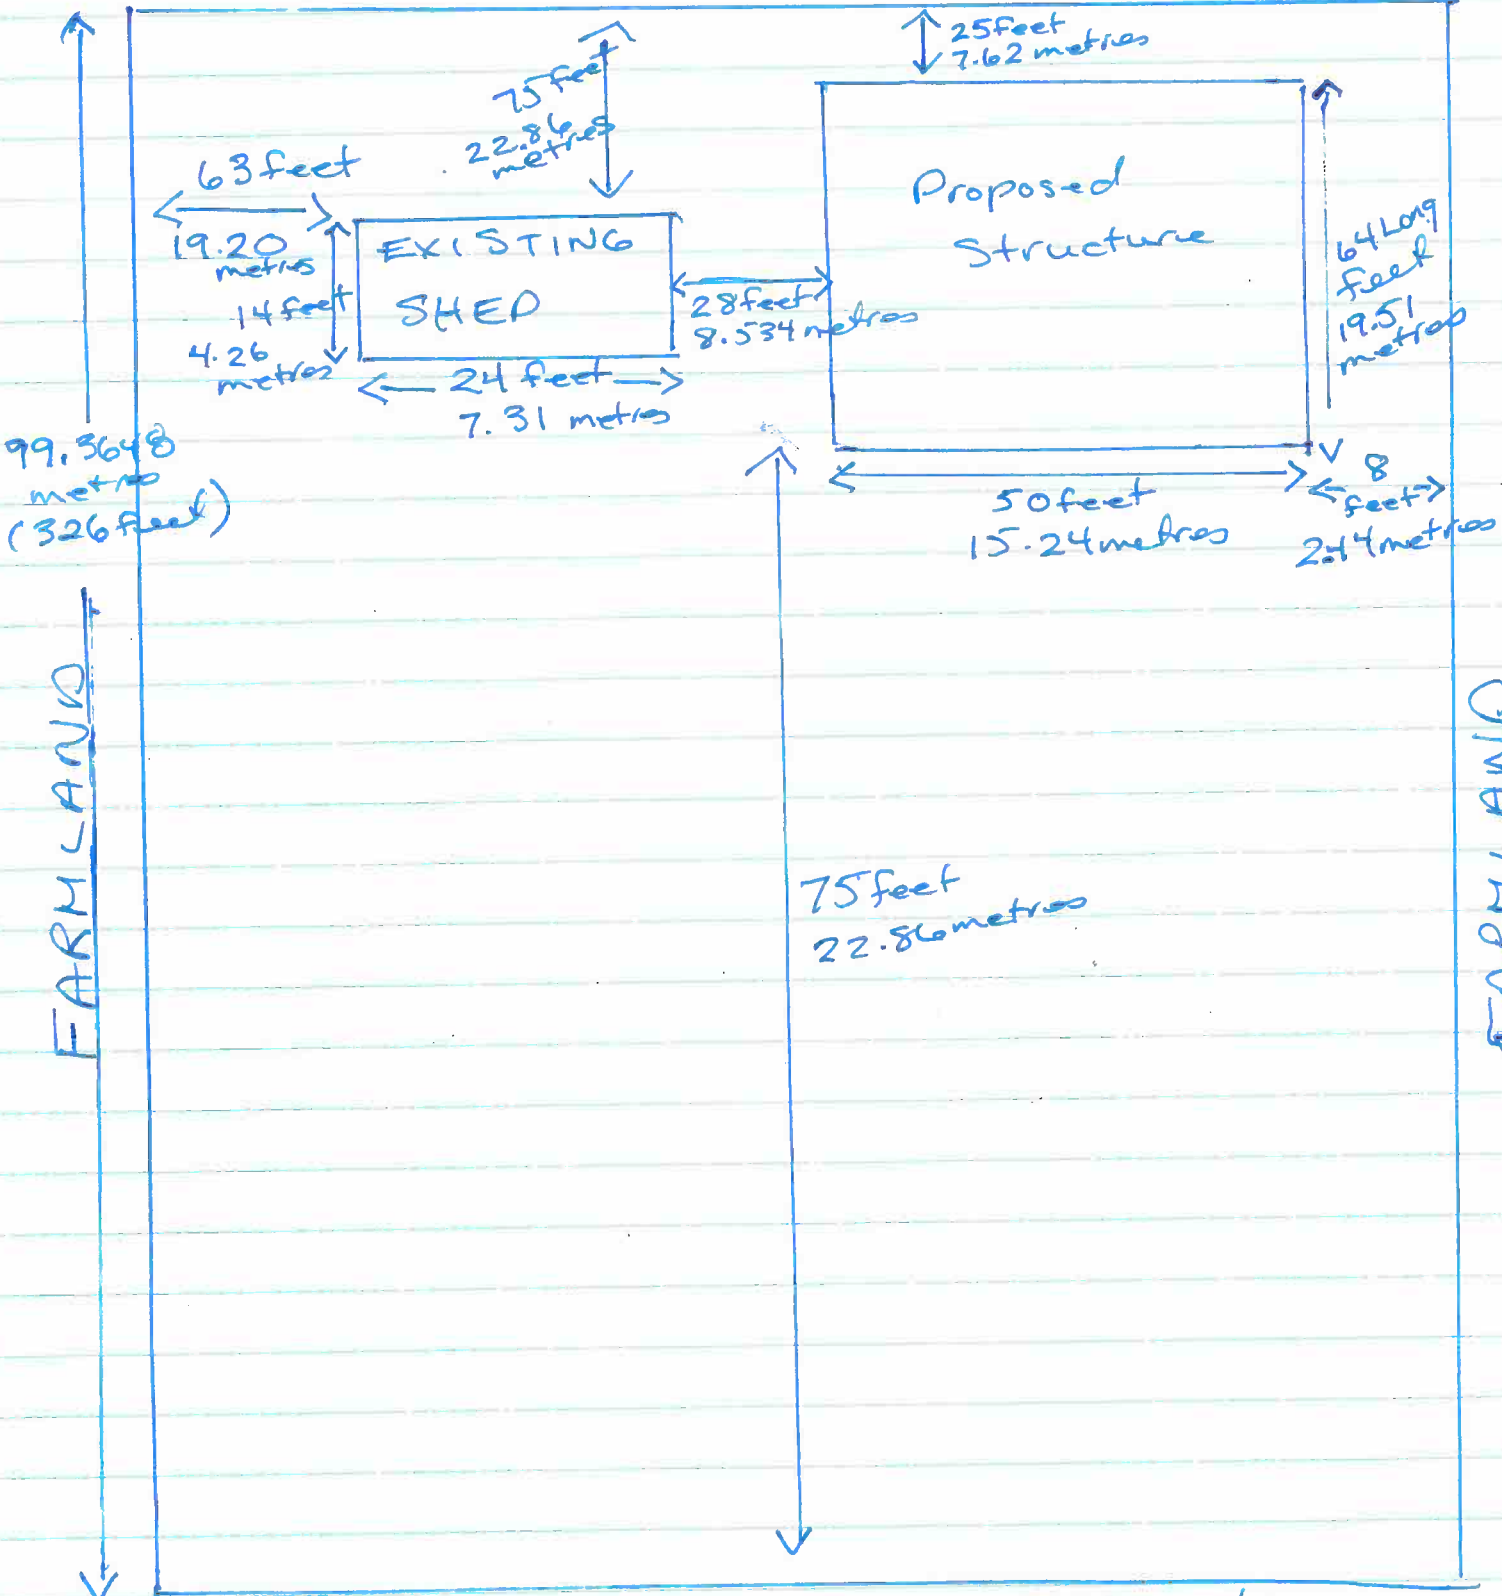 25 feet
7.62 metres
75 feet
22.86
metres
63 feet
19.20
metres
EXISTING
SHED
14 feet
4.26
metres
24 feet
7.31 metres
28 feet
8.534 metres
Proposed
Structure
64 Long
feet
19.51
metres
50 feet
15.24 metres
8
feet
metres
99.3648
metres
(326 feet)
FARMLAND
75 feet
22.86 metres
FARMLAND